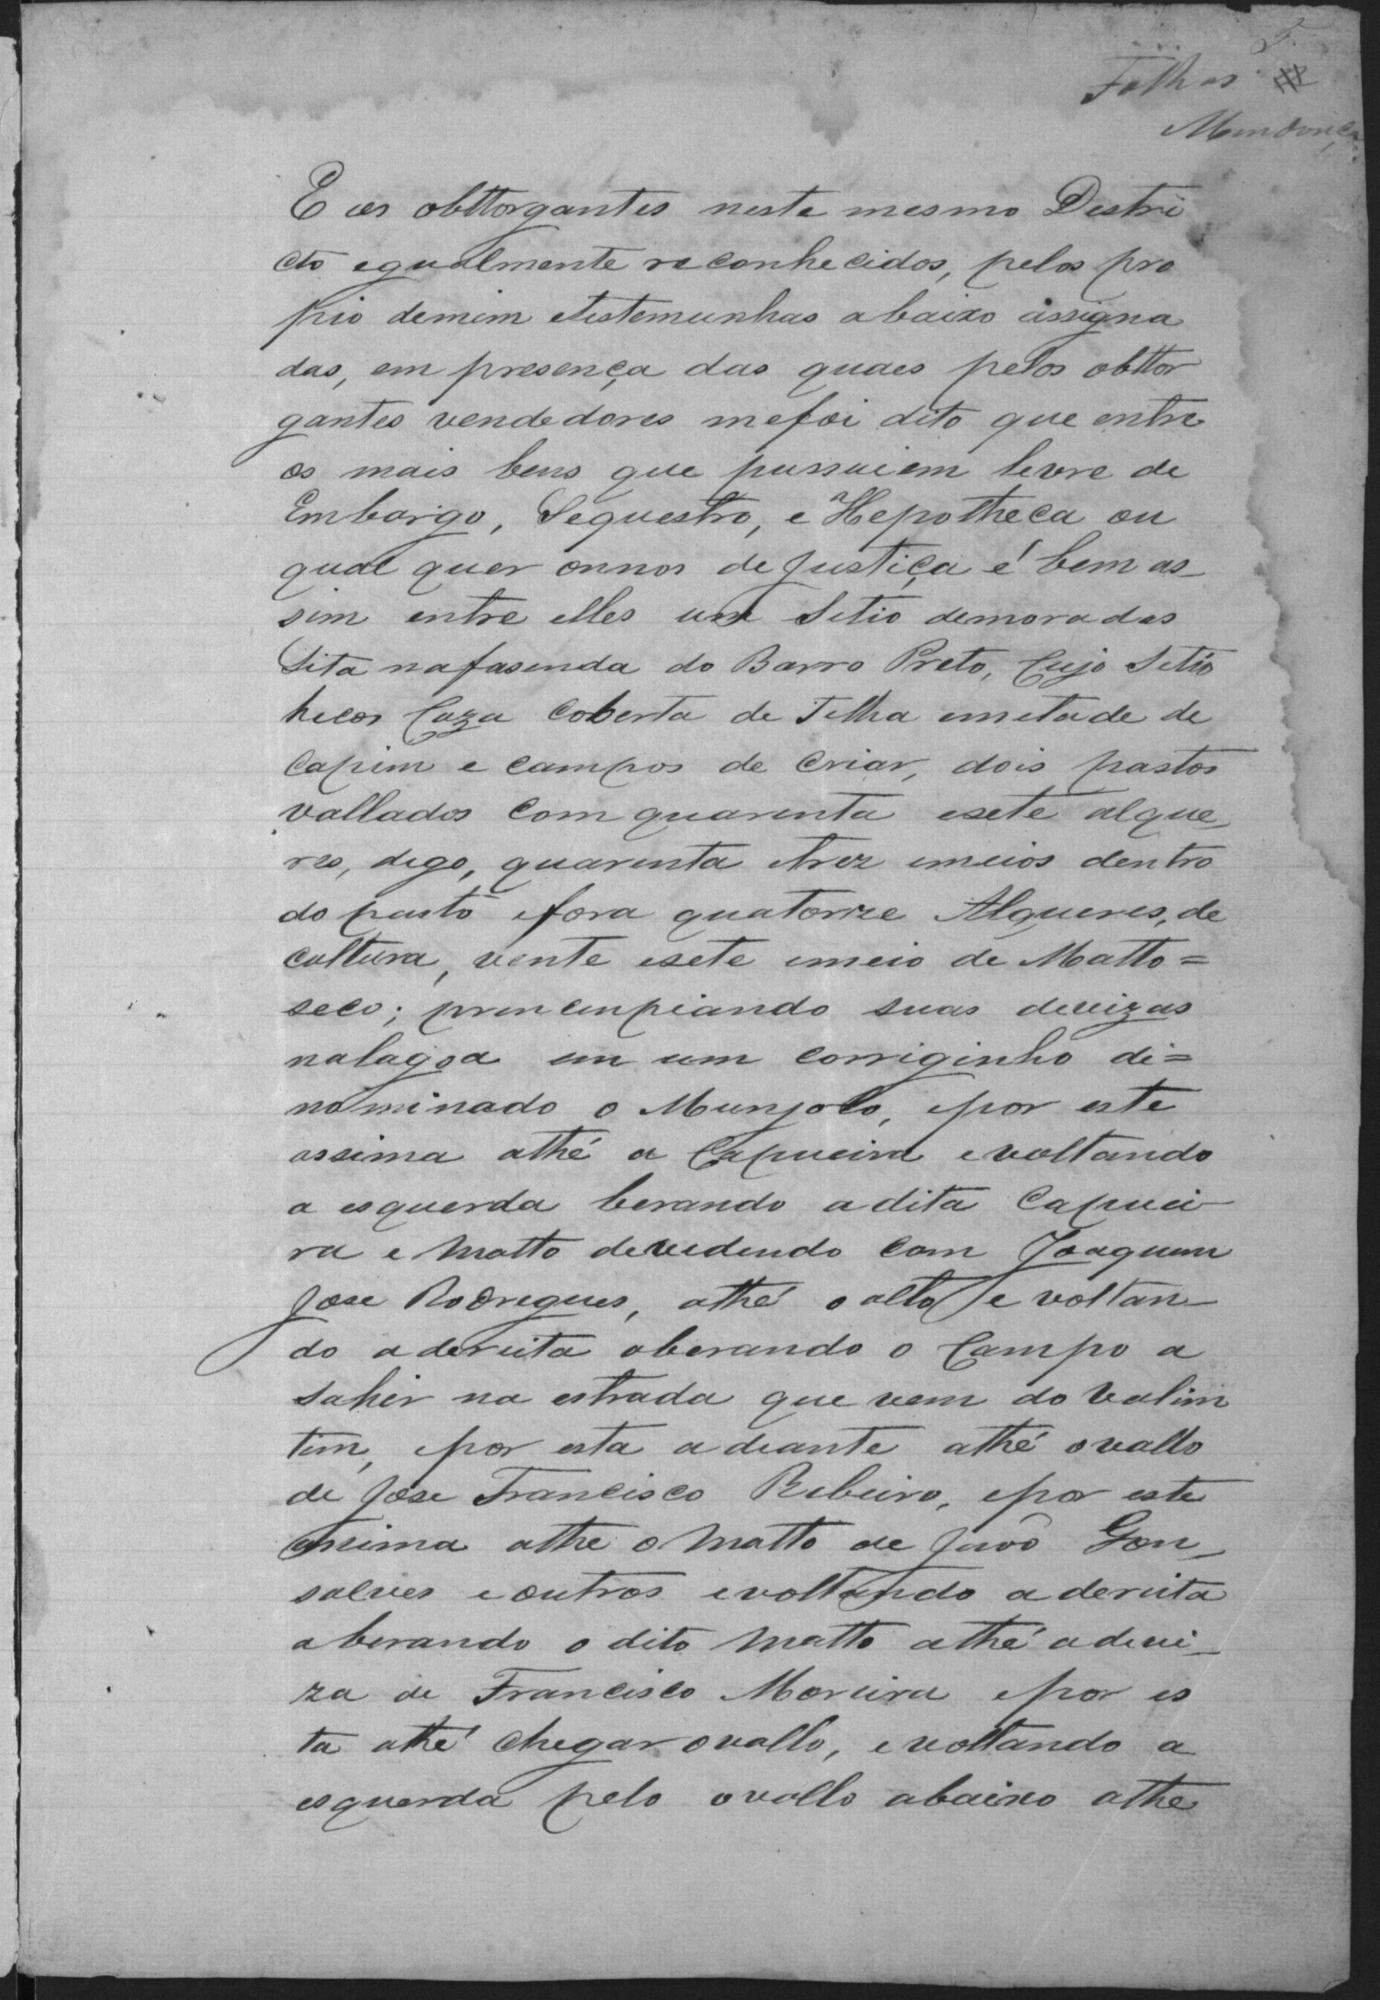 5.
Folhas
Mendonça
E os obttorgantes neste mesmo Destri
cto egualmente reconhecidos, pelos pro
prio demim etestemunhas abaixo assigna
das, em presença das quaes pelos obttor
gantes vendedores mefoi dito que entre
os mais bens que pussuiem levre de
Embargo, Sequestro, e Hepotheca ou
qual quer onnos de Justiça é bem as-
sim entre elles um Setio demoradas
Sita nafasenda do Barro Preto, Cujo Setio
Caza coberta de Telha emetade de
Capim e campos de criar, dois pastos
vallados com quarenta esete alque
res, digo, quarenta etrez emeios dentro
do pasto efora quatorze Alqueres, de
cultura, vente esete emeio de Matto=
seco; princinpiando suas devizas
nalagoa em um corriginho di=
nominado o Munjolo, epor este
assima athé a Capueira evoltando
a esquerda berando adita Capuei-
ra e Matto devedendo com Joaquim
Jose Rodregues, athé o alto e voltan-
do adereita aberando o Campo a
Sahir na estrada que vem do Valim
tim, epor esta adeante athé ovallo
de Jose Francisco Ribeiro, epor este
assima athe o Matto de João Gon-
salves e outros evoltando adereita
aberando o dito Matto athé adevi-
za de Francisco Moreira epor es
ta athé chegar ovallo, evoltando a
esquerda pelo ovallo abaixo athe